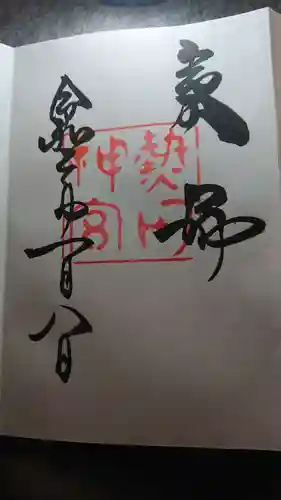 奉拝
熱田
神宮
令和二年十一月八日